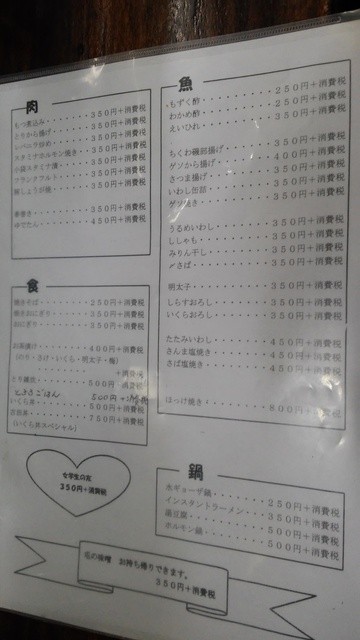 肉
もつ煮込み・・・・・・・350円+消費税
とりから揚げ・・・・・・350円+消費税
レバニラ炒め・・・・・・350円+消費税
スタミナホルモン焼き・・350円+消費税
小袋スタミナ漬・・・・・350円+消費税
フランクフルト・・・・・350円+消費税
豚しょうが焼・・・・・・350円+消費税
春巻き・・・・・・・・・350円+消費税
ゆでたん・・・・・・・・450円+消費税
食
焼きそば・・・・・・・・250円+消費税
焼きおにぎり・・・・・・250円+消費税
おにぎり・・・・・・・・350円+消費税
お茶漬け・・・・・・・・400円+消費税
(のり・さけ・いくら・明太子・梅)
+消費税
とり雑炊・・・・・・・・500円+消費税
500円+消費税
いくら丼・・・・・・・・500円+消費税
750円+消費税
(いくら丼スペシャル)
350円+消費税
魚
もずく酢・・・・・・・・250円+消費税
わかめ酢・・・・・・・・250円+消費税
えいひれ・・・・・・・・350円+消費税
ちくわ磯部揚げ・・・・・350円+消費税
ゲソから揚げ・・・・・・400円+消費税
さつま揚げ・・・・・・・350円+消費税
いわし缶詰・・・・・・・350円+消費税
ゲソ焼き・・・・・・・・350円+消費税
うるめいわし・・・・・・350円+消費税
ししゃも・・・・・・・・350円+消費税
みりん干し・・・・・・・350円+消費税
〆さば・・・・・・・・・350円+消費税
明太子・・・・・・・・・350円+消費税
しらすおろし・・・・・・350円+消費税
いくらおろし・・・・・・350円+消費税
たたみいわし・・・・・・450円+消費税
さんま塩焼き・・・・・・450円+消費税
さば塩焼き・・・・・・・450円+消費税
ほっけ焼き・・・・・・・800円+消費税
鍋
水ギョーザ鍋・・・・・・250円+消費税
インスタントラーメン・・350円+消費税
湯豆腐・・・・・・・・・500円+消費税
ホルモン鍋・・・・・・・500円+消費税
お持ち帰りできます。
350円+消費税